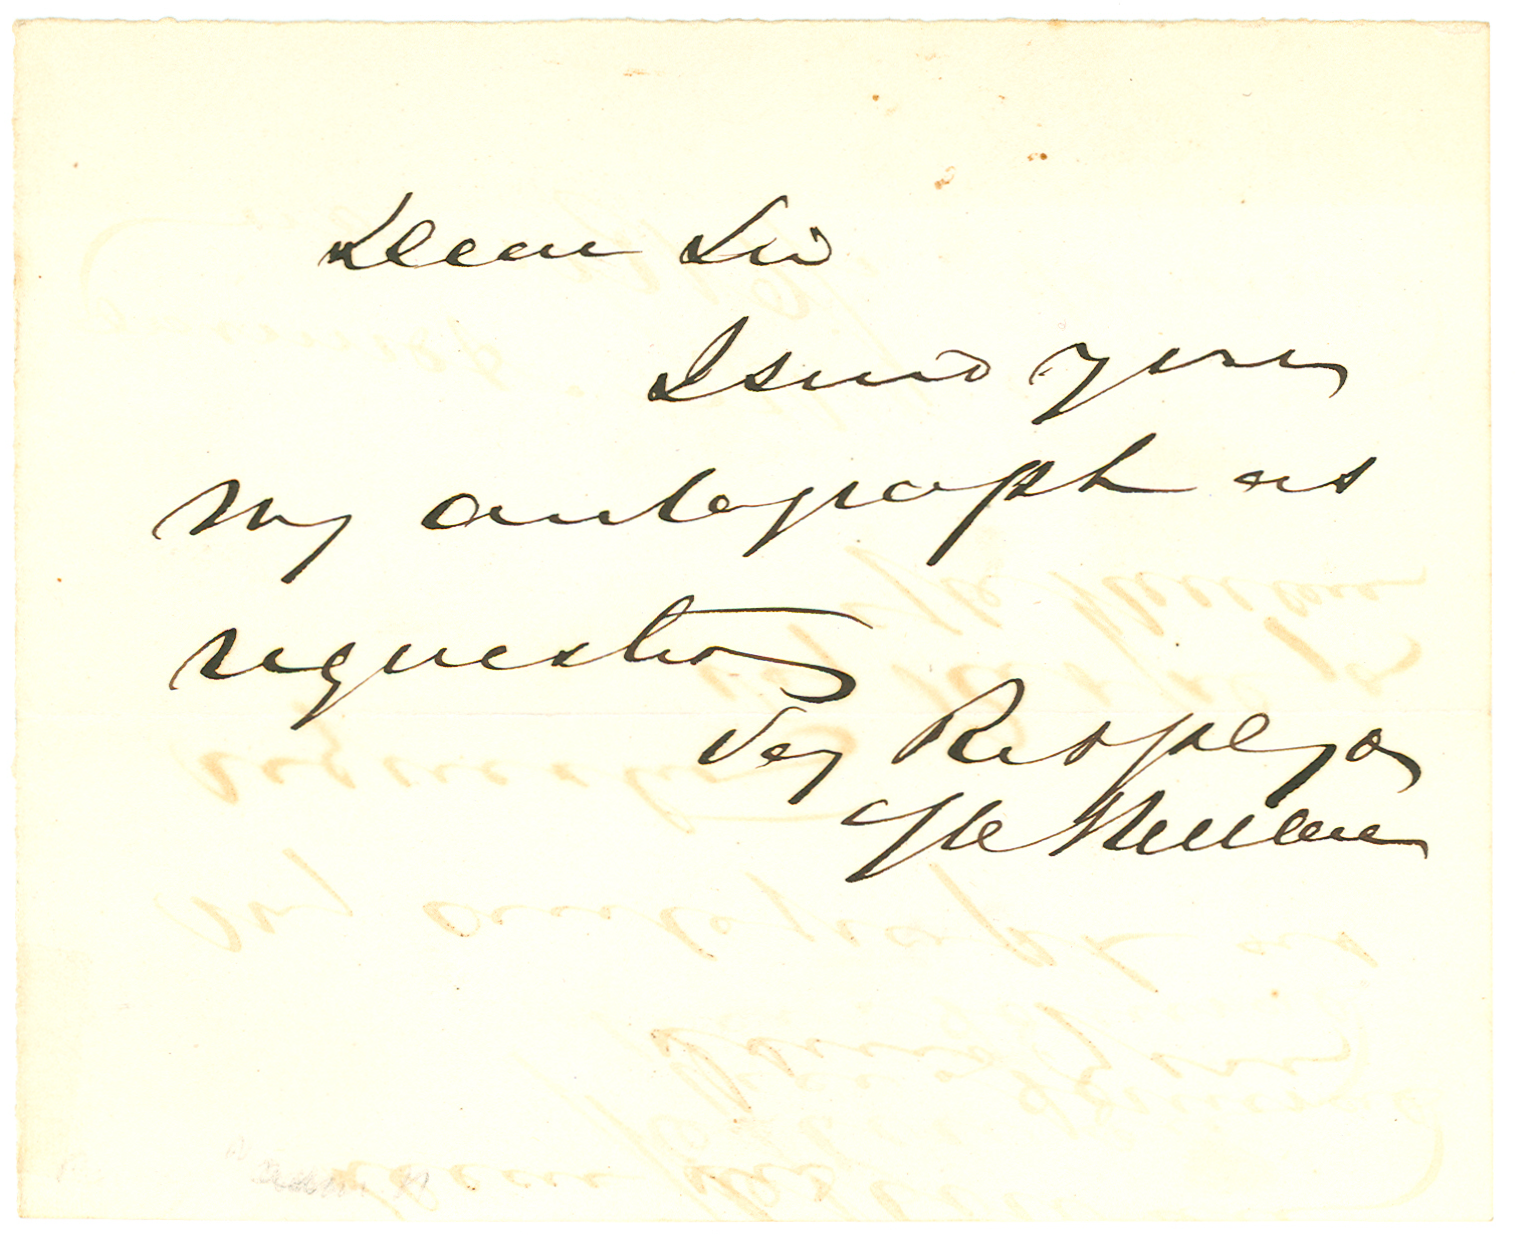 Dear Sir
I send you
my autograph as
requested
Very Respectfully